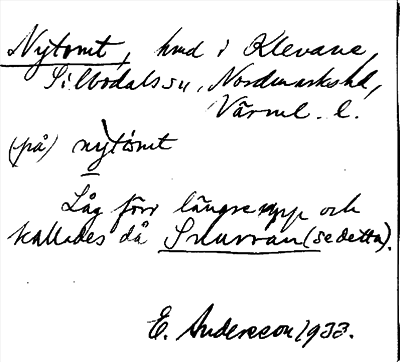 Nytomt, hmd i Klevane,
Silbodals sn, Nordmarks hd,
Värml. l.
(på) nytòmt
Låg förr längre upp och
kallades då Snurran (se detta).
E. Andersson 1933.